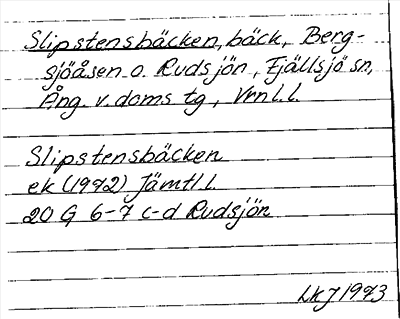 Slipstensbäcken, bäck, Berg-
sjöåsen o. Rudsjön, Fjällsjö sn,
Ång. v. doms tg, Vrnl. l.
Slipstensbäcken
ek (1972) Jämtl l.
20 G 6-7 c-d Rudsjön
LKJ 1973